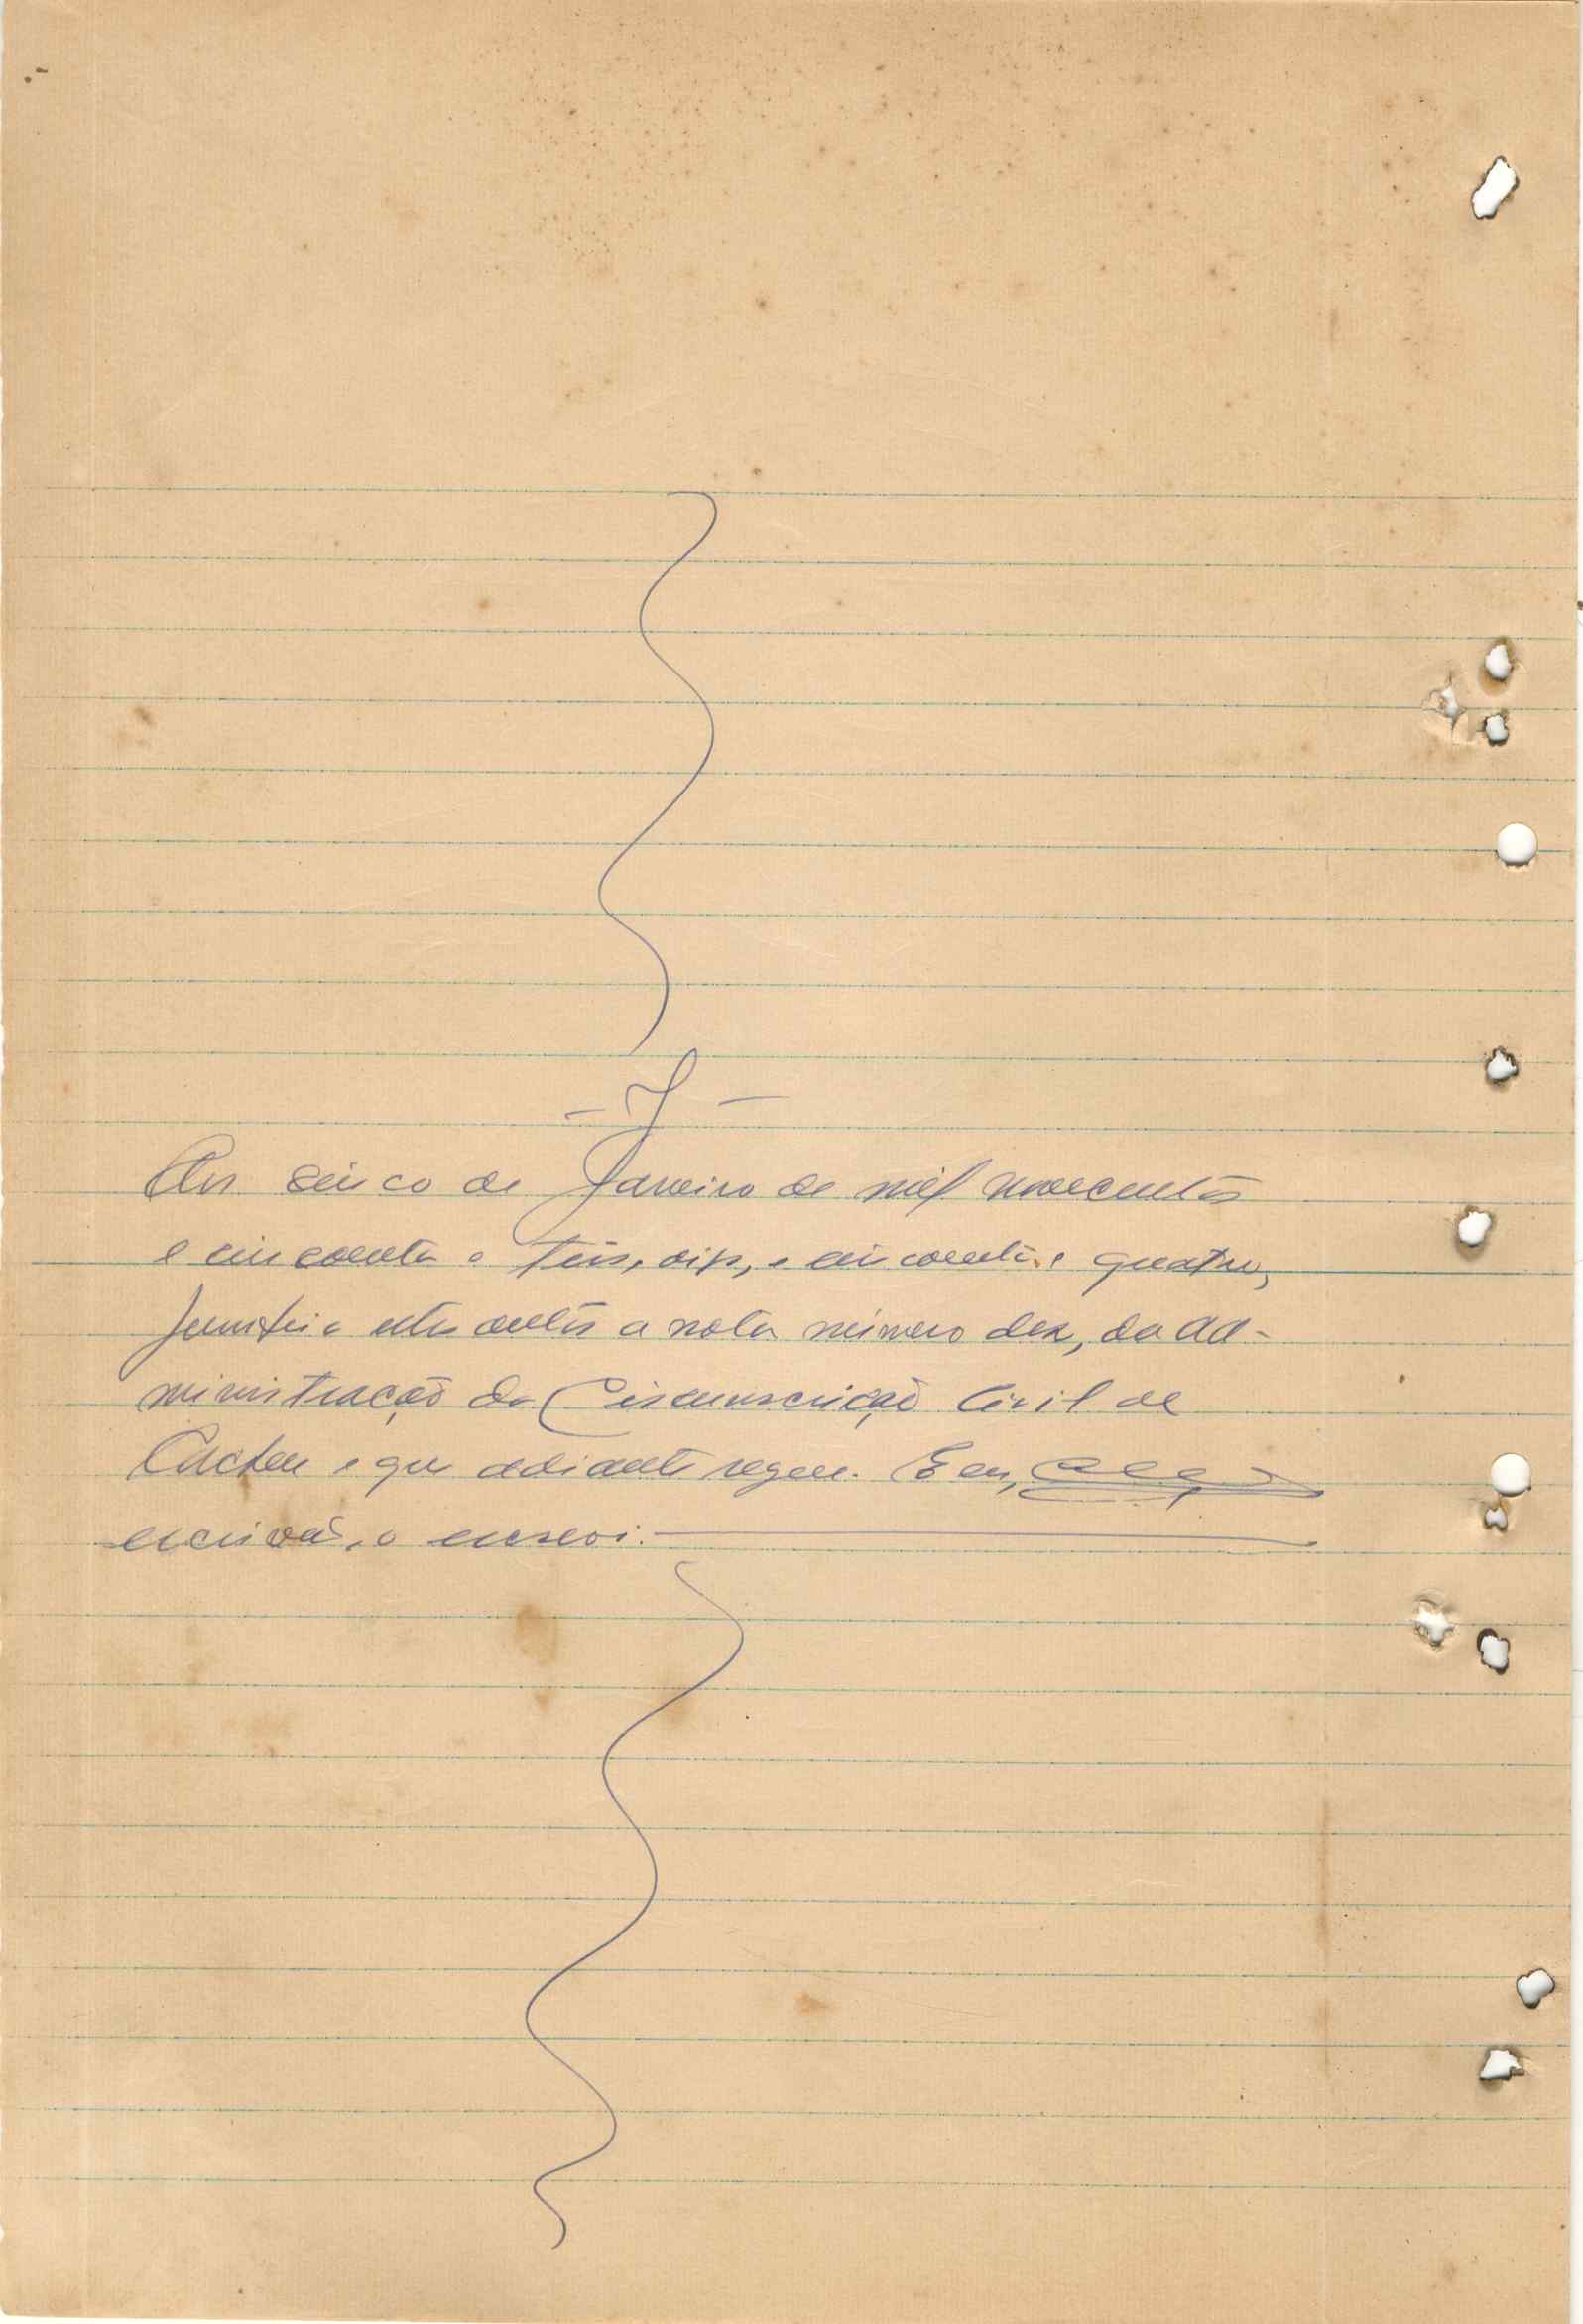 - J -
Aos cinco de Janeiro de mil novecentos
e cincoenta e três, digo, e cincoenta e quatro,
juntei a estes autos a nota número dez, da Ad-
ministração da Circunscrição Civil de
Cacheu e que adiante segue. E eu,
escrivão, o escrevi.